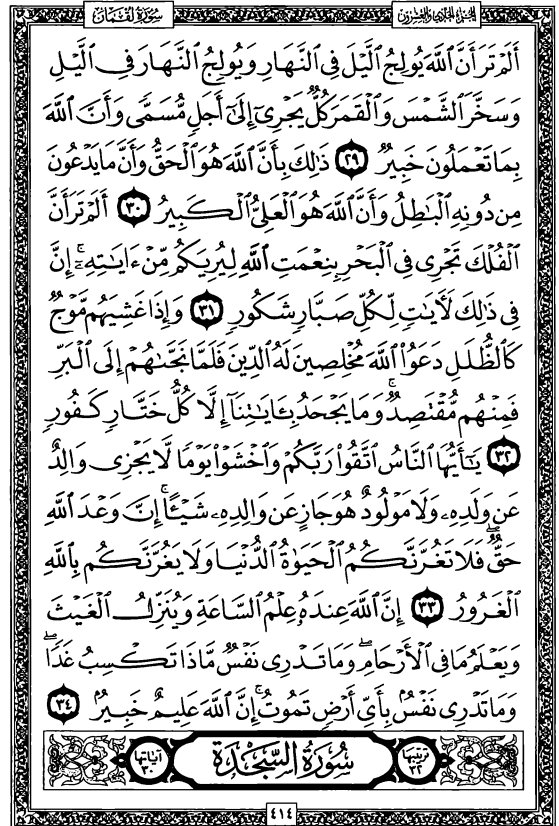 سورة لقمان
الجزء الحادي والعشرون
أَلَمْ تَرَ أَنَّ ٱللَّهَ يُولِجُ ٱلَّيْلَ فِى ٱلنَّهَارِ وَيُولِجُ ٱلنَّهَارَ فِى ٱلَّيْلِ
وَسَخَّرَ ٱلشَّمْسَ وَٱلْقَمَرَ كُلٌّ يَجْرِىٓ إِلَىٰٓ أَجَلٍ مُّسَمًّى وَأَنَّ ٱللَّهَ
بِمَا تَعْمَلُونَ خَبِيرٌ ٢٩ ذَٰلِكَ بِأَنَّ ٱللَّهَ هُوَ ٱلْحَقُّ وَأَنَّ مَا يَدْعُونَ
مِن دُونِهِ ٱلْبَٰطِلُ وَأَنَّ ٱللَّهَ هُوَ ٱلْعَلِىُّ ٱلْكَبِيرُ ٣٠ أَلَمْ تَرَ أَنَّ
ٱلْفُلْكَ تَجْرِى فِى ٱلْبَحْرِ بِنِعْمَتِ ٱللَّهِ لِيُرِيَكُم مِّنْ ءَايَٰتِهِۦٓ ۚ إِنَّ
فِى ذَٰلِكَ لَءَايَٰتٍ لِّكُلِّ صَبَّارٍ شَكُورٍ ٣١ وَإِذَا غَشِيَهُم مَّوْجٌ
كَٱلظُّلَلِ دَعَوُا۟ ٱللَّهَ مُخْلِصِينَ لَهُ ٱلدِّينَ فَلَمَّا نَجَّىٰهُمْ إِلَى ٱلْبَرِّ
فَمِنْهُم مُّقْتَصِدٌ ۚ وَمَا يَجْحَدُ بِـَٔايَٰتِنَآ إِلَّا كُلُّ خَتَّارٍ كَفُورٍ
٣٢ يَٰٓأَيُّهَا ٱلنَّاسُ ٱتَّقُوا۟ رَبَّكُمْ وَٱخْشَوْا۟ يَوْمًا لَّا يَجْزِى وَالِدٌ
عَن وَلَدِهِۦ وَلَا مَوْلُودٌ هُوَ جَازٍ عَن وَالِدِهِۦ شَيْـًٔا ۚ إِنَّ وَعْدَ ٱللَّهِ
حَقٌّ ۖ فَلَا تَغُرَّنَّكُمُ ٱلْحَيَوٰةُ ٱلدُّنْيَا وَلَا يَغُرَّنَّكُم بِٱللَّهِ
ٱلْغَرُورُ ٣٣ إِنَّ ٱللَّهَ عِندَهُۥ عِلْمُ ٱلسَّاعَةِ وَيُنَزِّلُ ٱلْغَيْثَ
وَيَعْلَمُ مَا فِى ٱلْأَرْحَامِ ۖ وَمَا تَدْرِى نَفْسٌ مَّاذَا تَكْسِبُ غَدًا ۖ
وَمَا تَدْرِى نَفْسٌۢ بِأَىِّ أَرْضٍ تَمُوتُ ۚ إِنَّ ٱللَّهَ عَلِيمٌ خَبِيرٌۢ ٣٤
ترتيبها ٣٢ سُورَةُ السَّجْدَةِ آياتها ٣٠
٤١٤